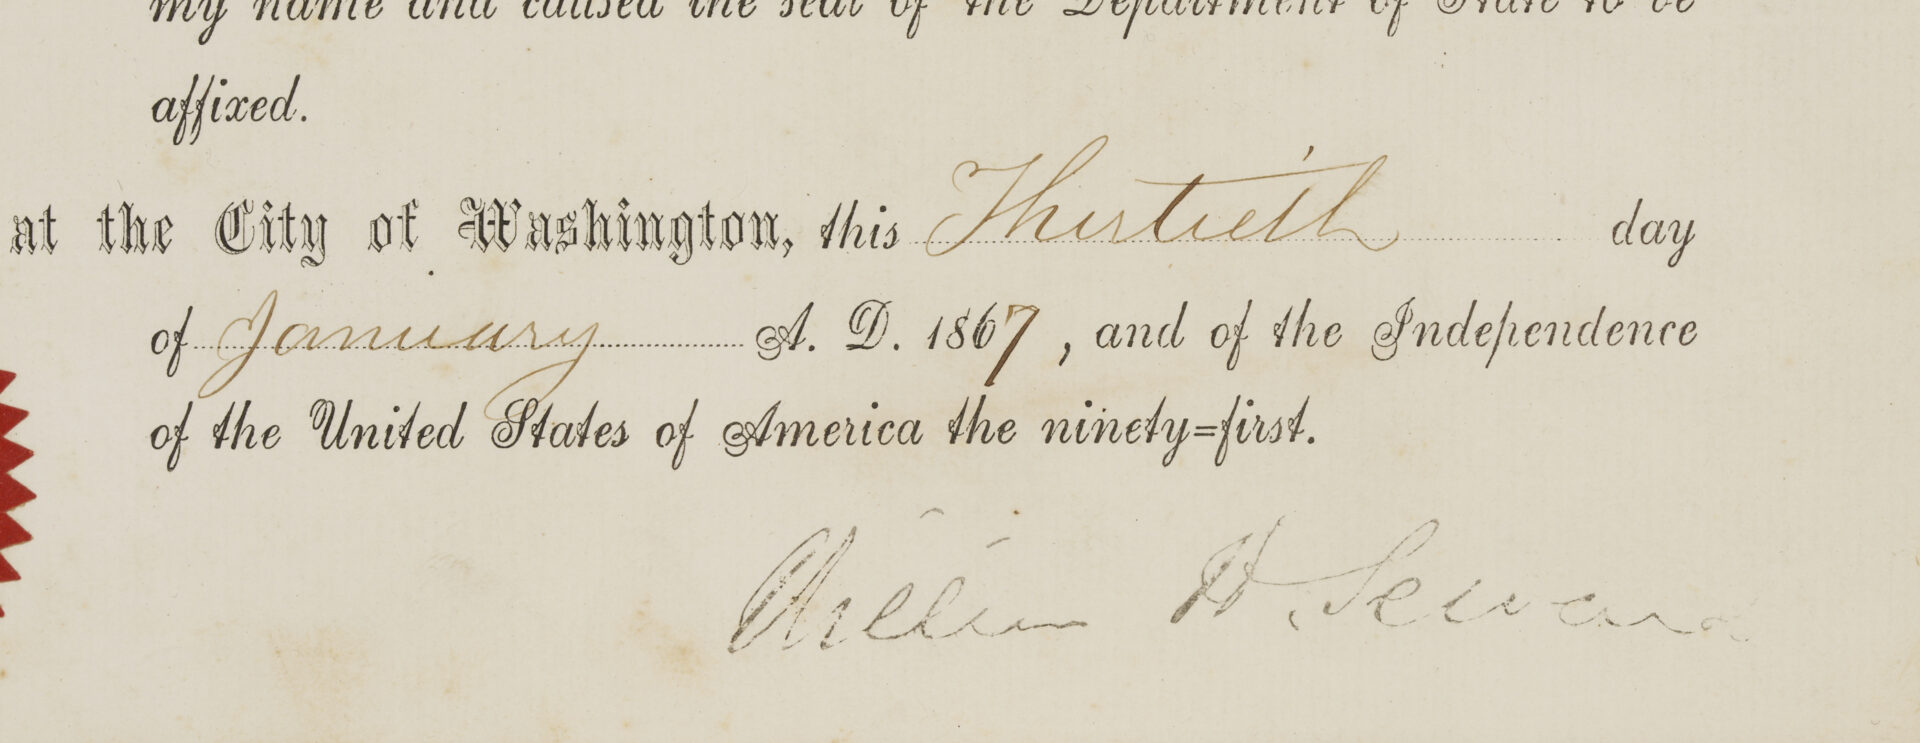 my name and caused the seal of the Department of State to be
affixed.
at the City of Washington, this Thirtieth day
of January A. D. 1867, and of the Independence
of the United States of America the ninety=first.
William H. Seward